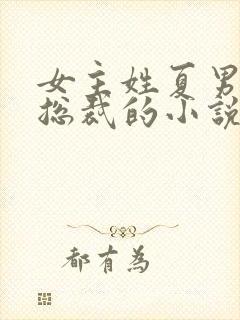 女主姓夏男
总裁的小說
都有為